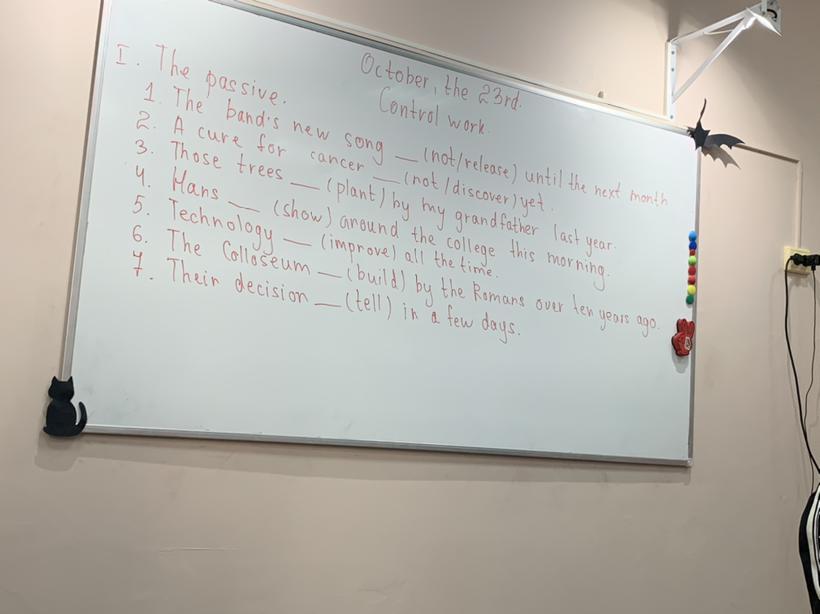 October, the 23rd.
Control work.
I. The passive.
1. The band's new song __ (not/release) until the next month
2. A cure for cancer __ (not/discover) yet.
3. Those trees __ (plant) by my grandfather last year.
4. Hans __ (show) around the college this morning.
5. Technology __ (improve) all the time.
6. The Colloseum __ (build) by the Romans over ten years ago.
7. Their decision __ (tell) in a few days.